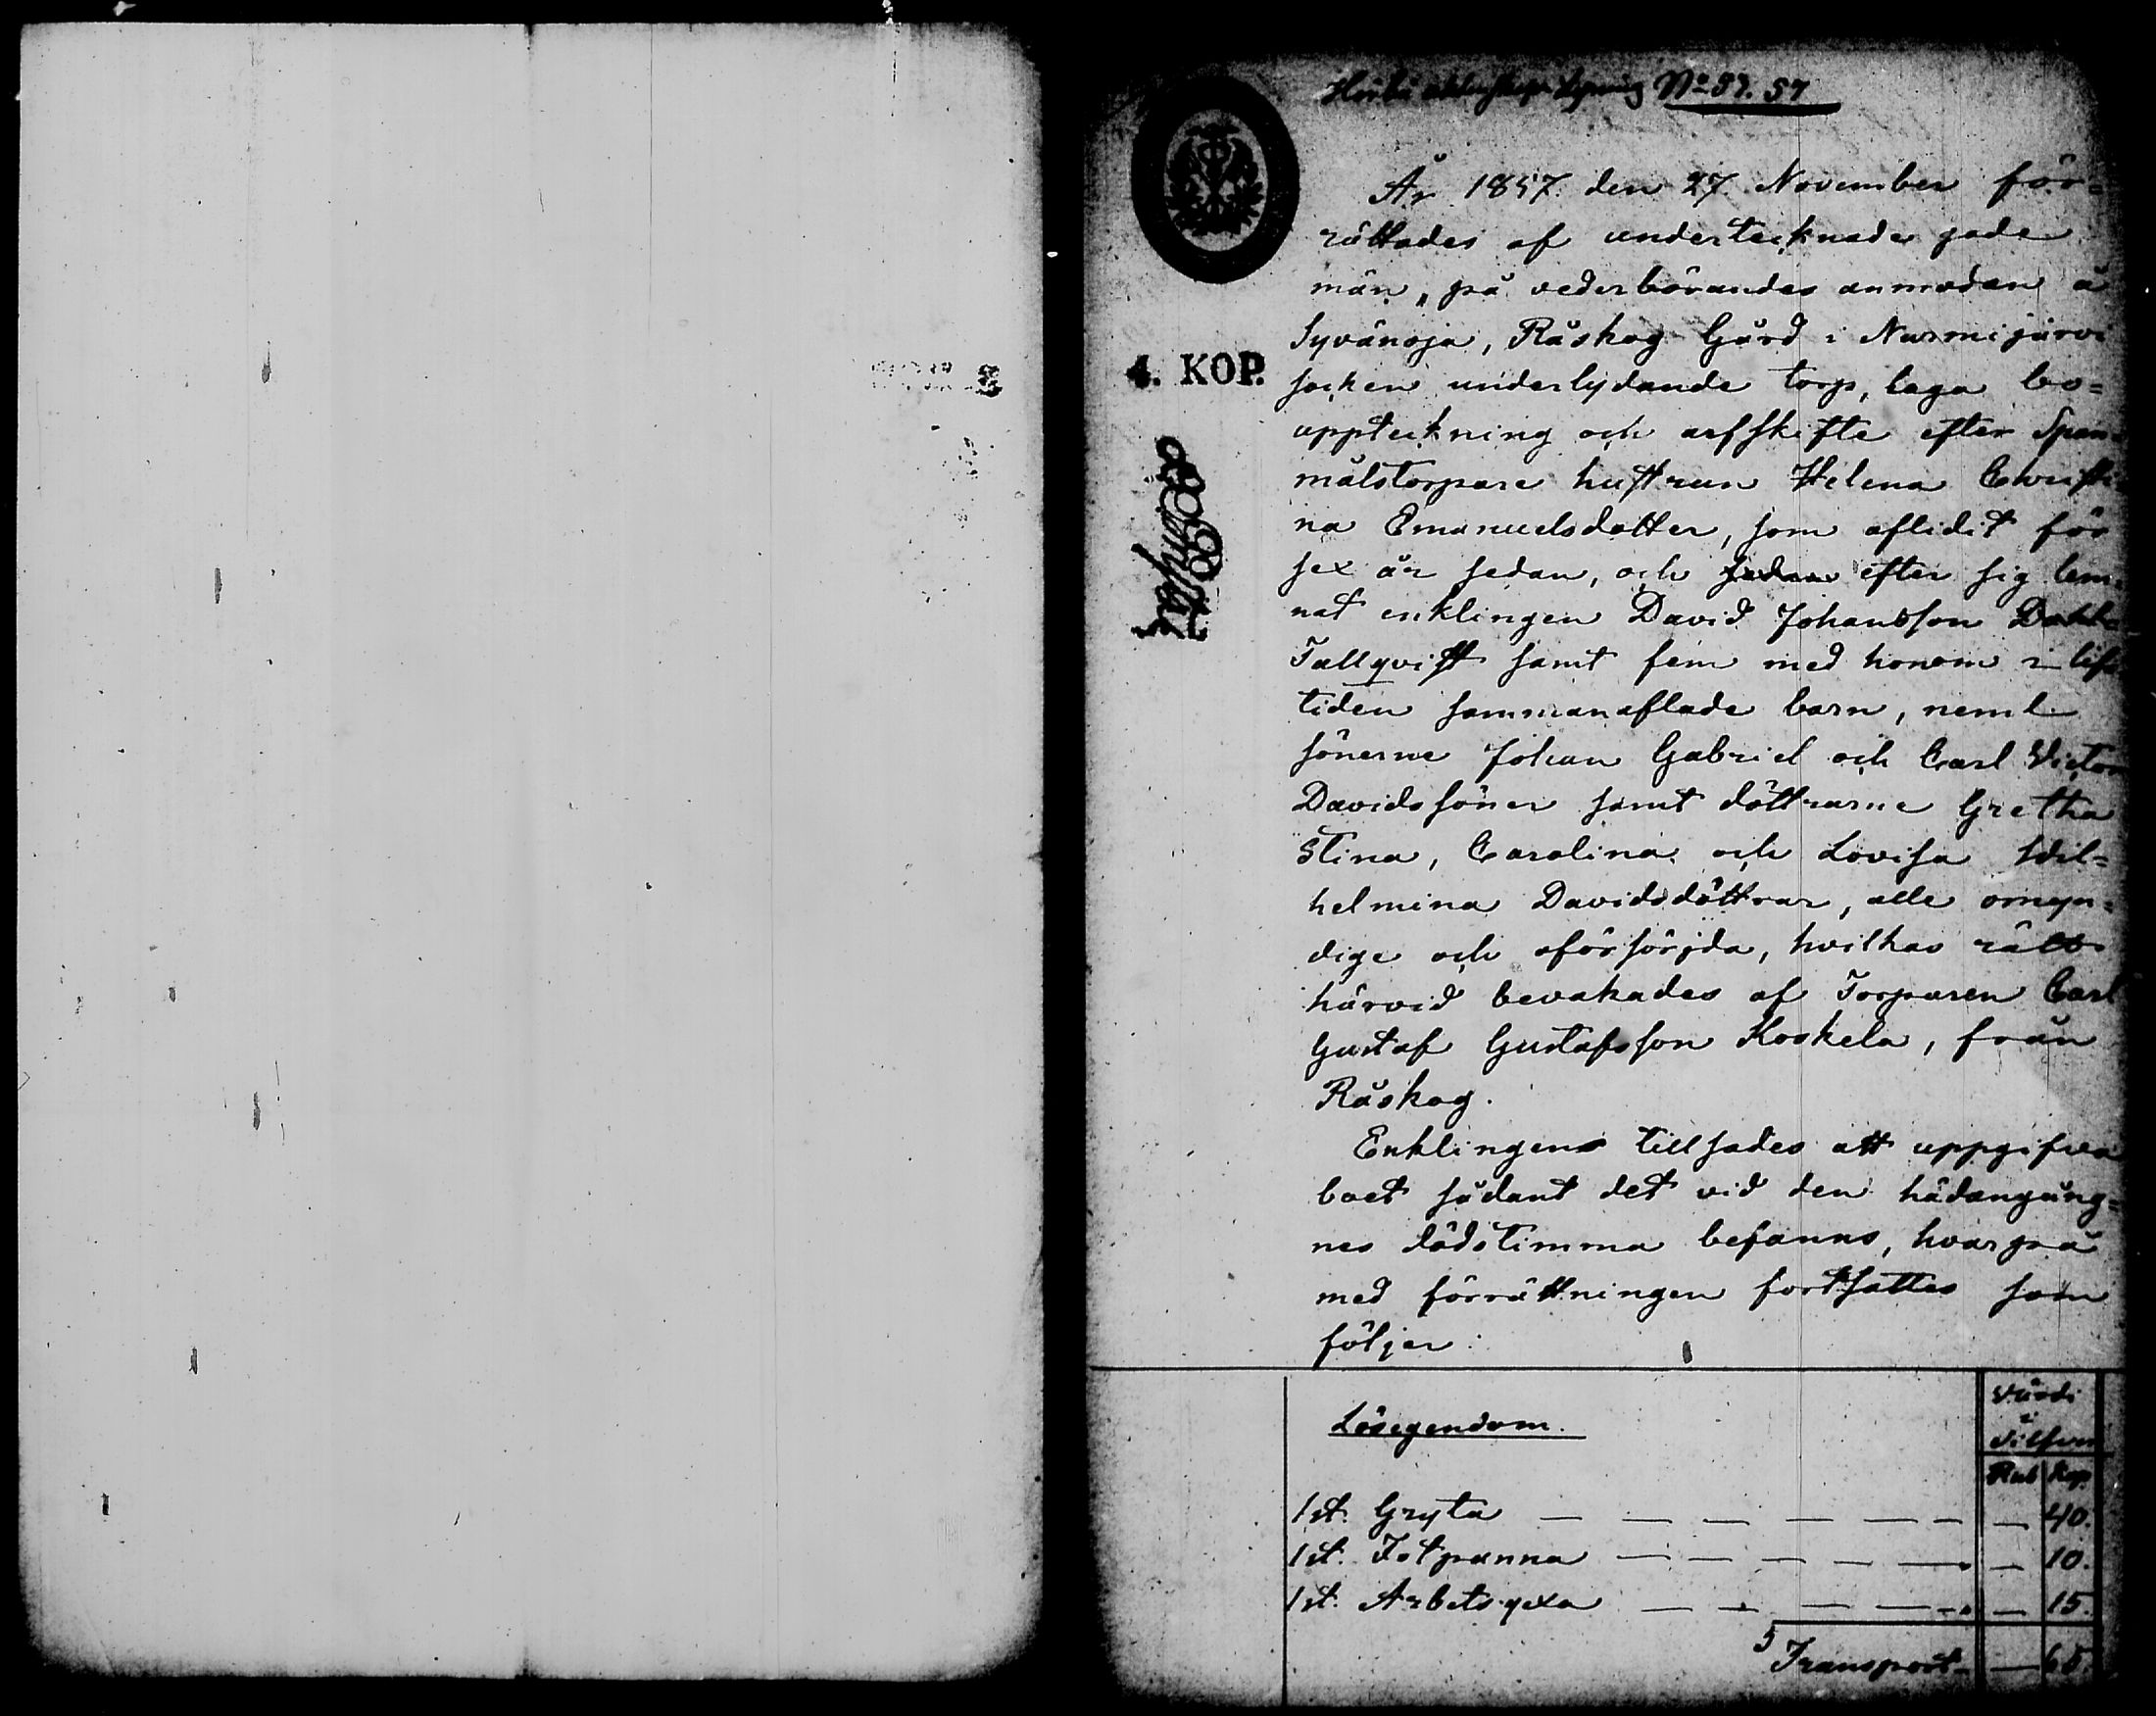 No 57. 57
År 1857 den 27 November för=
rättades af undertecknade gode
män, på vederbörandes anmodan å
Syvänoja, Råskog Gård i Nurmijärvi
socken underlydande torp, laga bo=
uppteckning och arfskifte efter Span=
målstorpare hustrun Helena Christi
na Emanuelsdotter, som aflidit för
4. KOP.
sex år sedan, och sedan efter sig lem=
nat enklingen David Johansson
Tallqvist samt fem med honom i lifs
tiden sammanaflade barn, neml.
sönerne Johan Gabriel och Carl Victor
Davidssöner samt döttrarne Gretha
Stina, Carolina och Lovisa Wil=
helmina Davidsdöttrar, alle omyn=
dige och oförsörjda, hvilkas rätt
härvid bevakades af Torparen Carl
Gustaf Gustafsson Koskela, från
Råskog.
Enklingen tillsades att uppgifva
boet sådant det vid den hädangång=
nes dödstimma befanns, hvarpå
med förrättningen fortsattes som
följer:
Lösegendom.
Värde
i
Silfver
Rub Kop.
1 st. Gryta — 40.
1 st. Fotpanna — 10.
1 st. Arbetsyxa — 15.
Transport — 65.